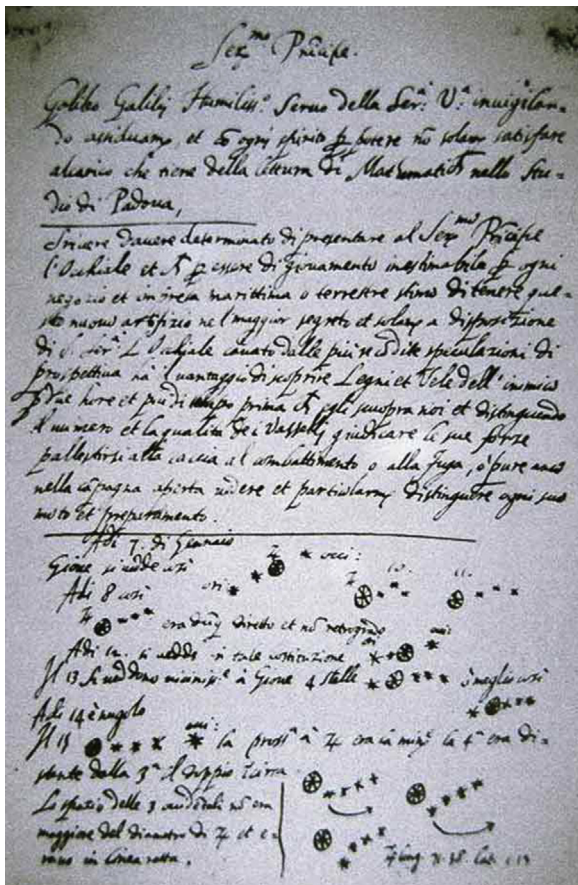 Ser.mo Pricipe.
Galileo Galilej Humiliss.o Servo della Ser.a V.a invigilan-
do assiduam.te, et cō ogni spirito p potere nō solam.te satisfare
al carico che tiene della lettura di Mathematich nello Stu-
dio di Padova,
Scrivere d'avere determinato di presentare al Ser.mo Pricipe
l'Occhiale et p essere di giovamento inestimabile p ogni
negozio et impresa marittima o terrestre stimo di tenere que-
sto nuovo artifizio nel maggior segreto et solam.te a disposizione
di S. Ser.a L'Occhiale cavato dalle più recōdite speculazioni di
prospettiva hà il vantaggio di scoprire Legni et Vele dell'inimico
p due hore et più di tempo prima ch egli scuopra noi et distinguendo
il numero et la qualità dei Vasselli giudicare le sue forze
pallestirsi alla caccia al combattimento o alla fuga, o pure anco
nella cāpagna aperta vedere et particolarm.te distinguere ogni suo
moto et preparamento.
Adi 7. di Gennaio
Giove si vedde così
occi:
Adi 8 così
ori
10.
11.
era dūq diretto et nō retrogrado
Adi 12. si vedde in tale costituzione
occi
Il 13 si veddono vicinis.e à Giove 4 stelle
ò meglio così
Adi 14 è nugolo
Il 15
occi:
la pross.a à ♃ era la min.e la 4.a era di-
stante dalla 3.a il doppio circa
Lo spazio delle 3 occidentali nō era
maggiore del diametro di ♃ et e-
rano in linea retta.
♃ long. 71.38. Lat. 1.13